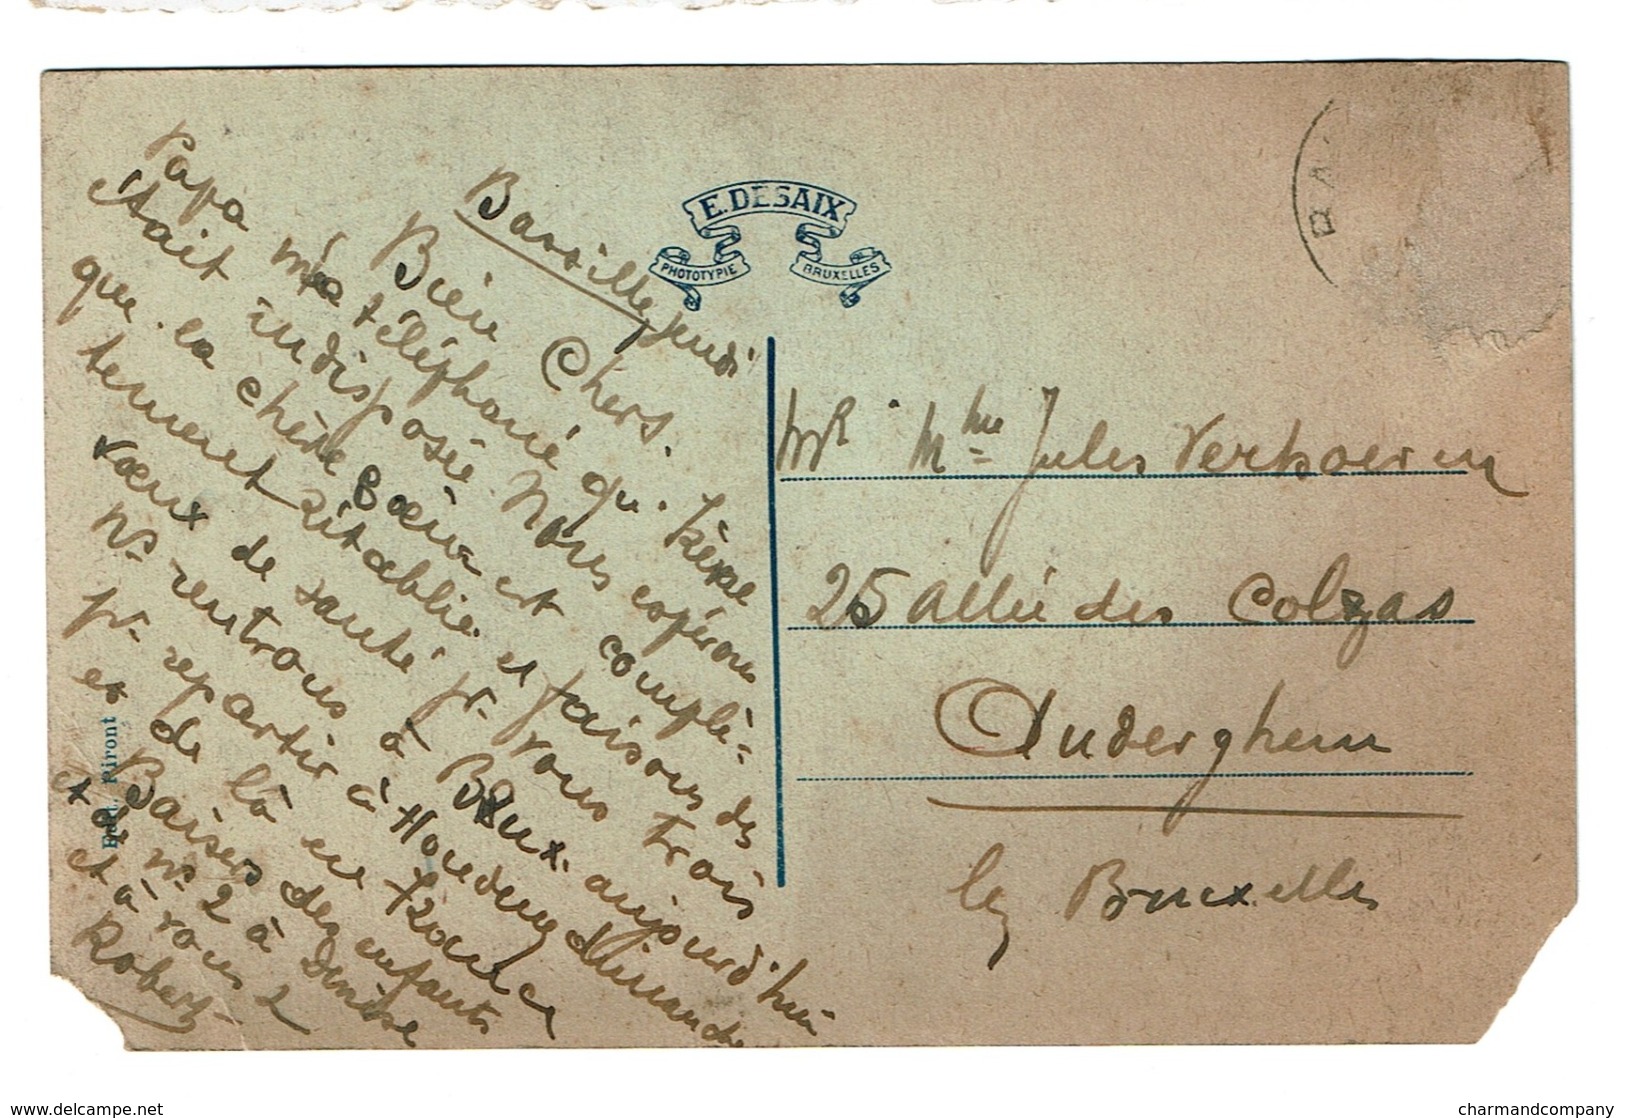 Barsille, jeudi
Bien Chers.
Papa m'a téléphoné qu.
était indisposée. Nous espérons
que la chère sœur est complè=
tement rétablie et faisons des
vœux de santé pr. vous trois
Ns. rentrons à Bxux. aujourd'hui
pr. repartir à Houdeng dimanche
et de là en France
Baisers des enfants
et de ns. 2 à Denise
et à vous 2
Robert
Edit. Piront
E. DESAIX
PHOTOTYPIE BRUXELLES
BA
Mr. Mme Jules Verhoeven
25 allée des Colzas
Auderghem
lez Bruxelles
delcampe.net
charmandcompany